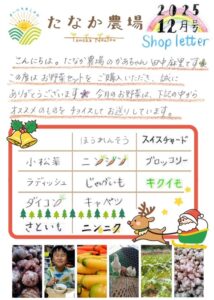 たなか農場
Tanaka Noujou
2025
12月号
Shop letter
こんにちは。たなか農場のかあちゃん 田中麻里です
この度はお野菜セットをご購入いただき、誠に
ありがとうございます 今月のお野菜は、下記の中から
オススメのものをチョイスしてお送りしています。
ほうれんそう スイスチャード
小松菜 ニンジン ブロッコリー
ラディッシュ じゃがいも キクイモ
ダイコン キャベツ
さといも ニンニク